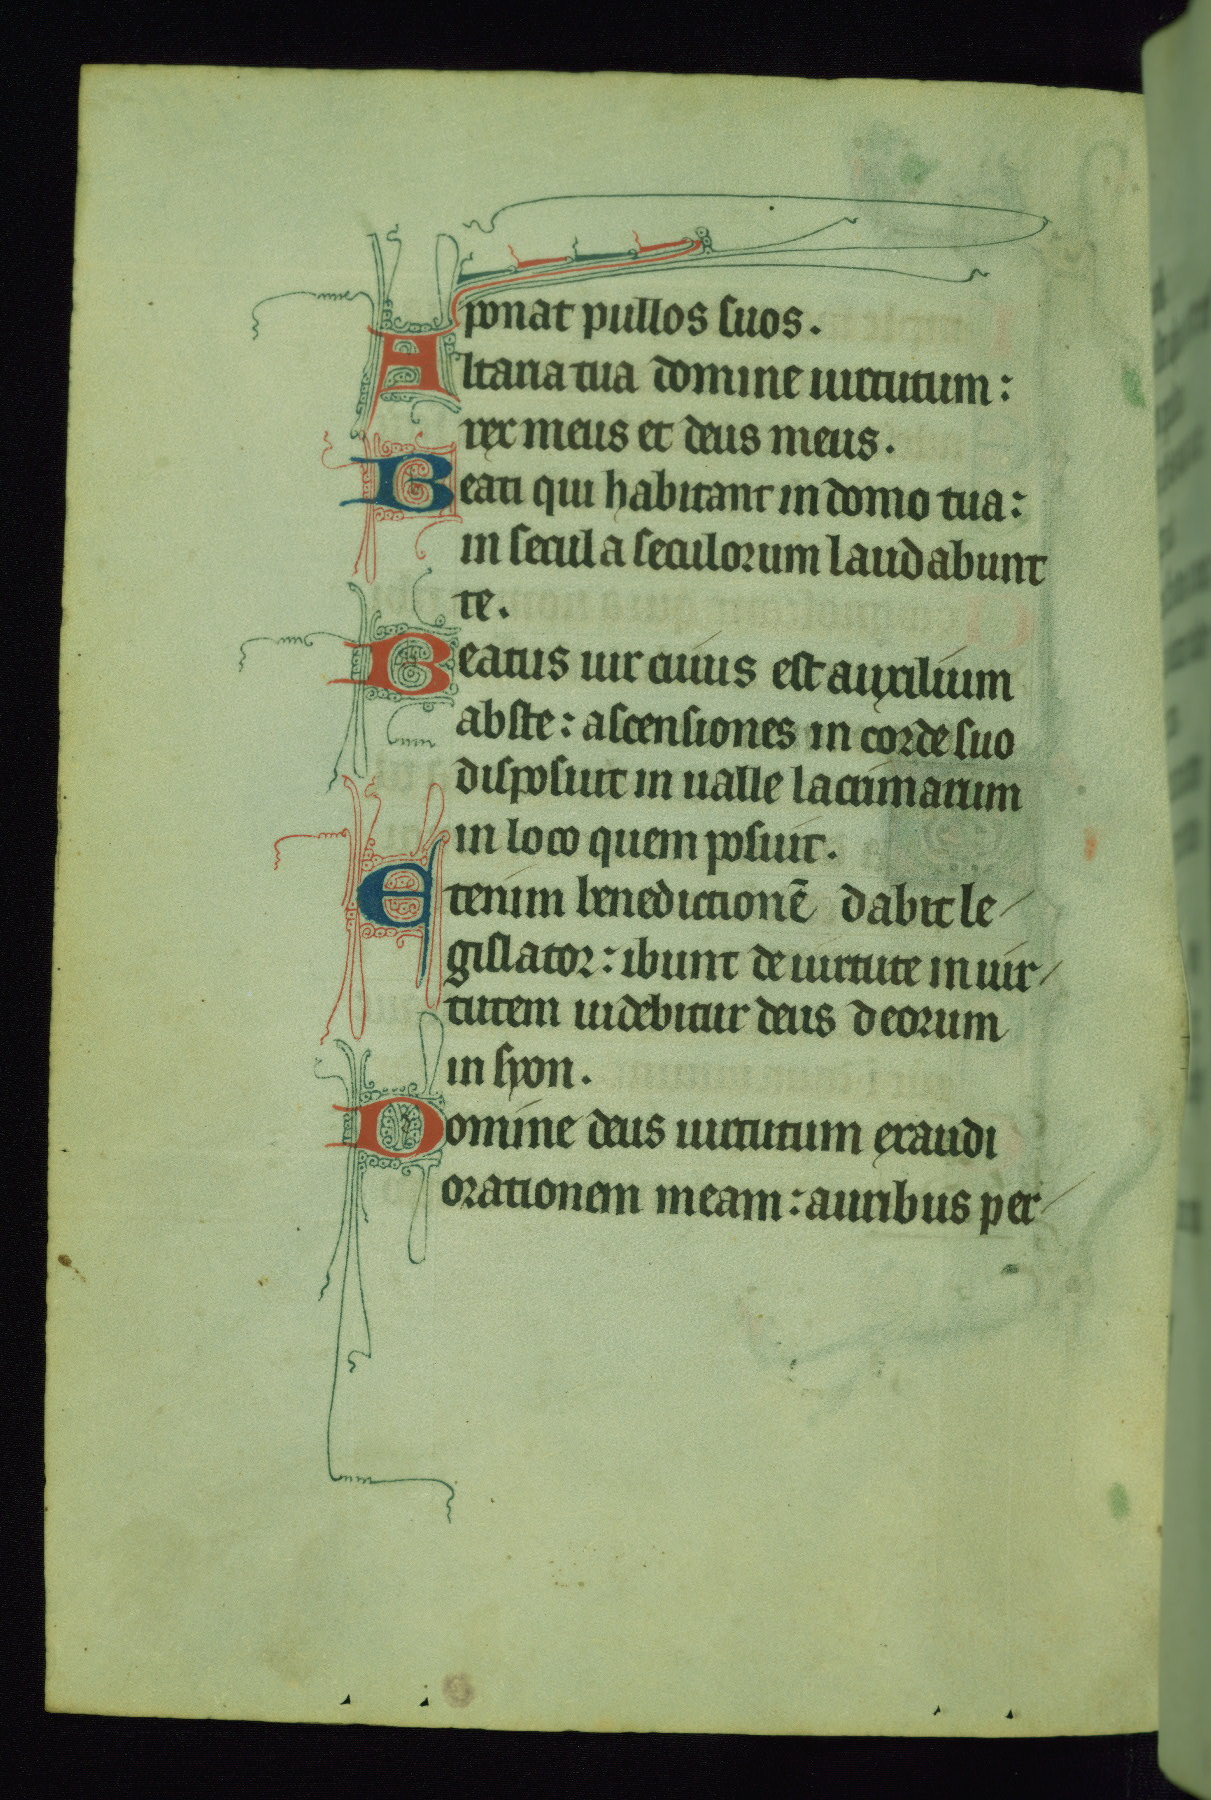 ponat pullos suos.
Altaria tua domine uirtutum:
rex meus et deus meus.
Beati qui habitant in domo tua:
in secula seculorum laudabunt
te.
Beatus uir cuius est auxilium
abs te: ascensiones in corde suo
disposuit in ualle lacrimarum
in loco quem posuit.
Etenim benedictionē dabit le
gislator: ibunt de uirtute in uir
tutem uidebitur deus deorum
in syon.
Domine deus uirtutum exaudi
orationem meam: auribus per